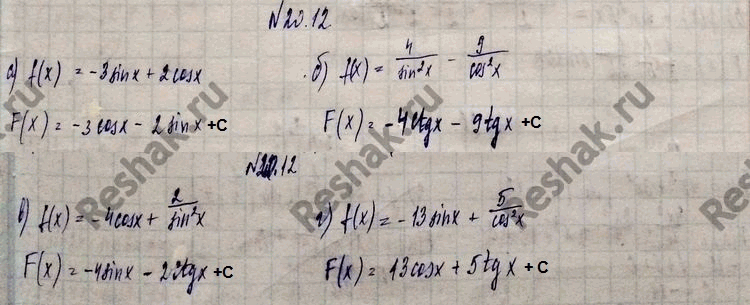 №20.12.
а) f(x) = -3sinx + 2cosx
F(x) = -3cosx - 2sinx +C
б) f(x) = 4/sin²x - 9/cos²x
F(x) = -4ctgx - 9tgx +C
№20.12
в) f(x) = -4cosx + 2/sin²x
F(x) = -4sinx - 2ctgx +C
г) f(x) = -13sinx + 5/cos²x
F(x) = 13cosx + 5tgx +C
Reshak.ru
Reshak.ru
Reshak.ru
Reshak.ru
Reshak.ru
Reshak.ru